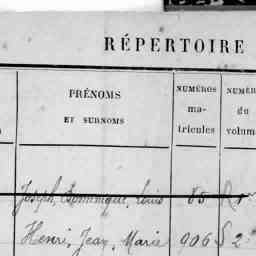 RÉPERTOIRE
PRÉNOMS
ET SURNOMS
NUMÉROS
ma-
tricules
NUMÉR
du
volum
Joseph, Dominique, Louis 85
Henri, Jean, Marie 906 2